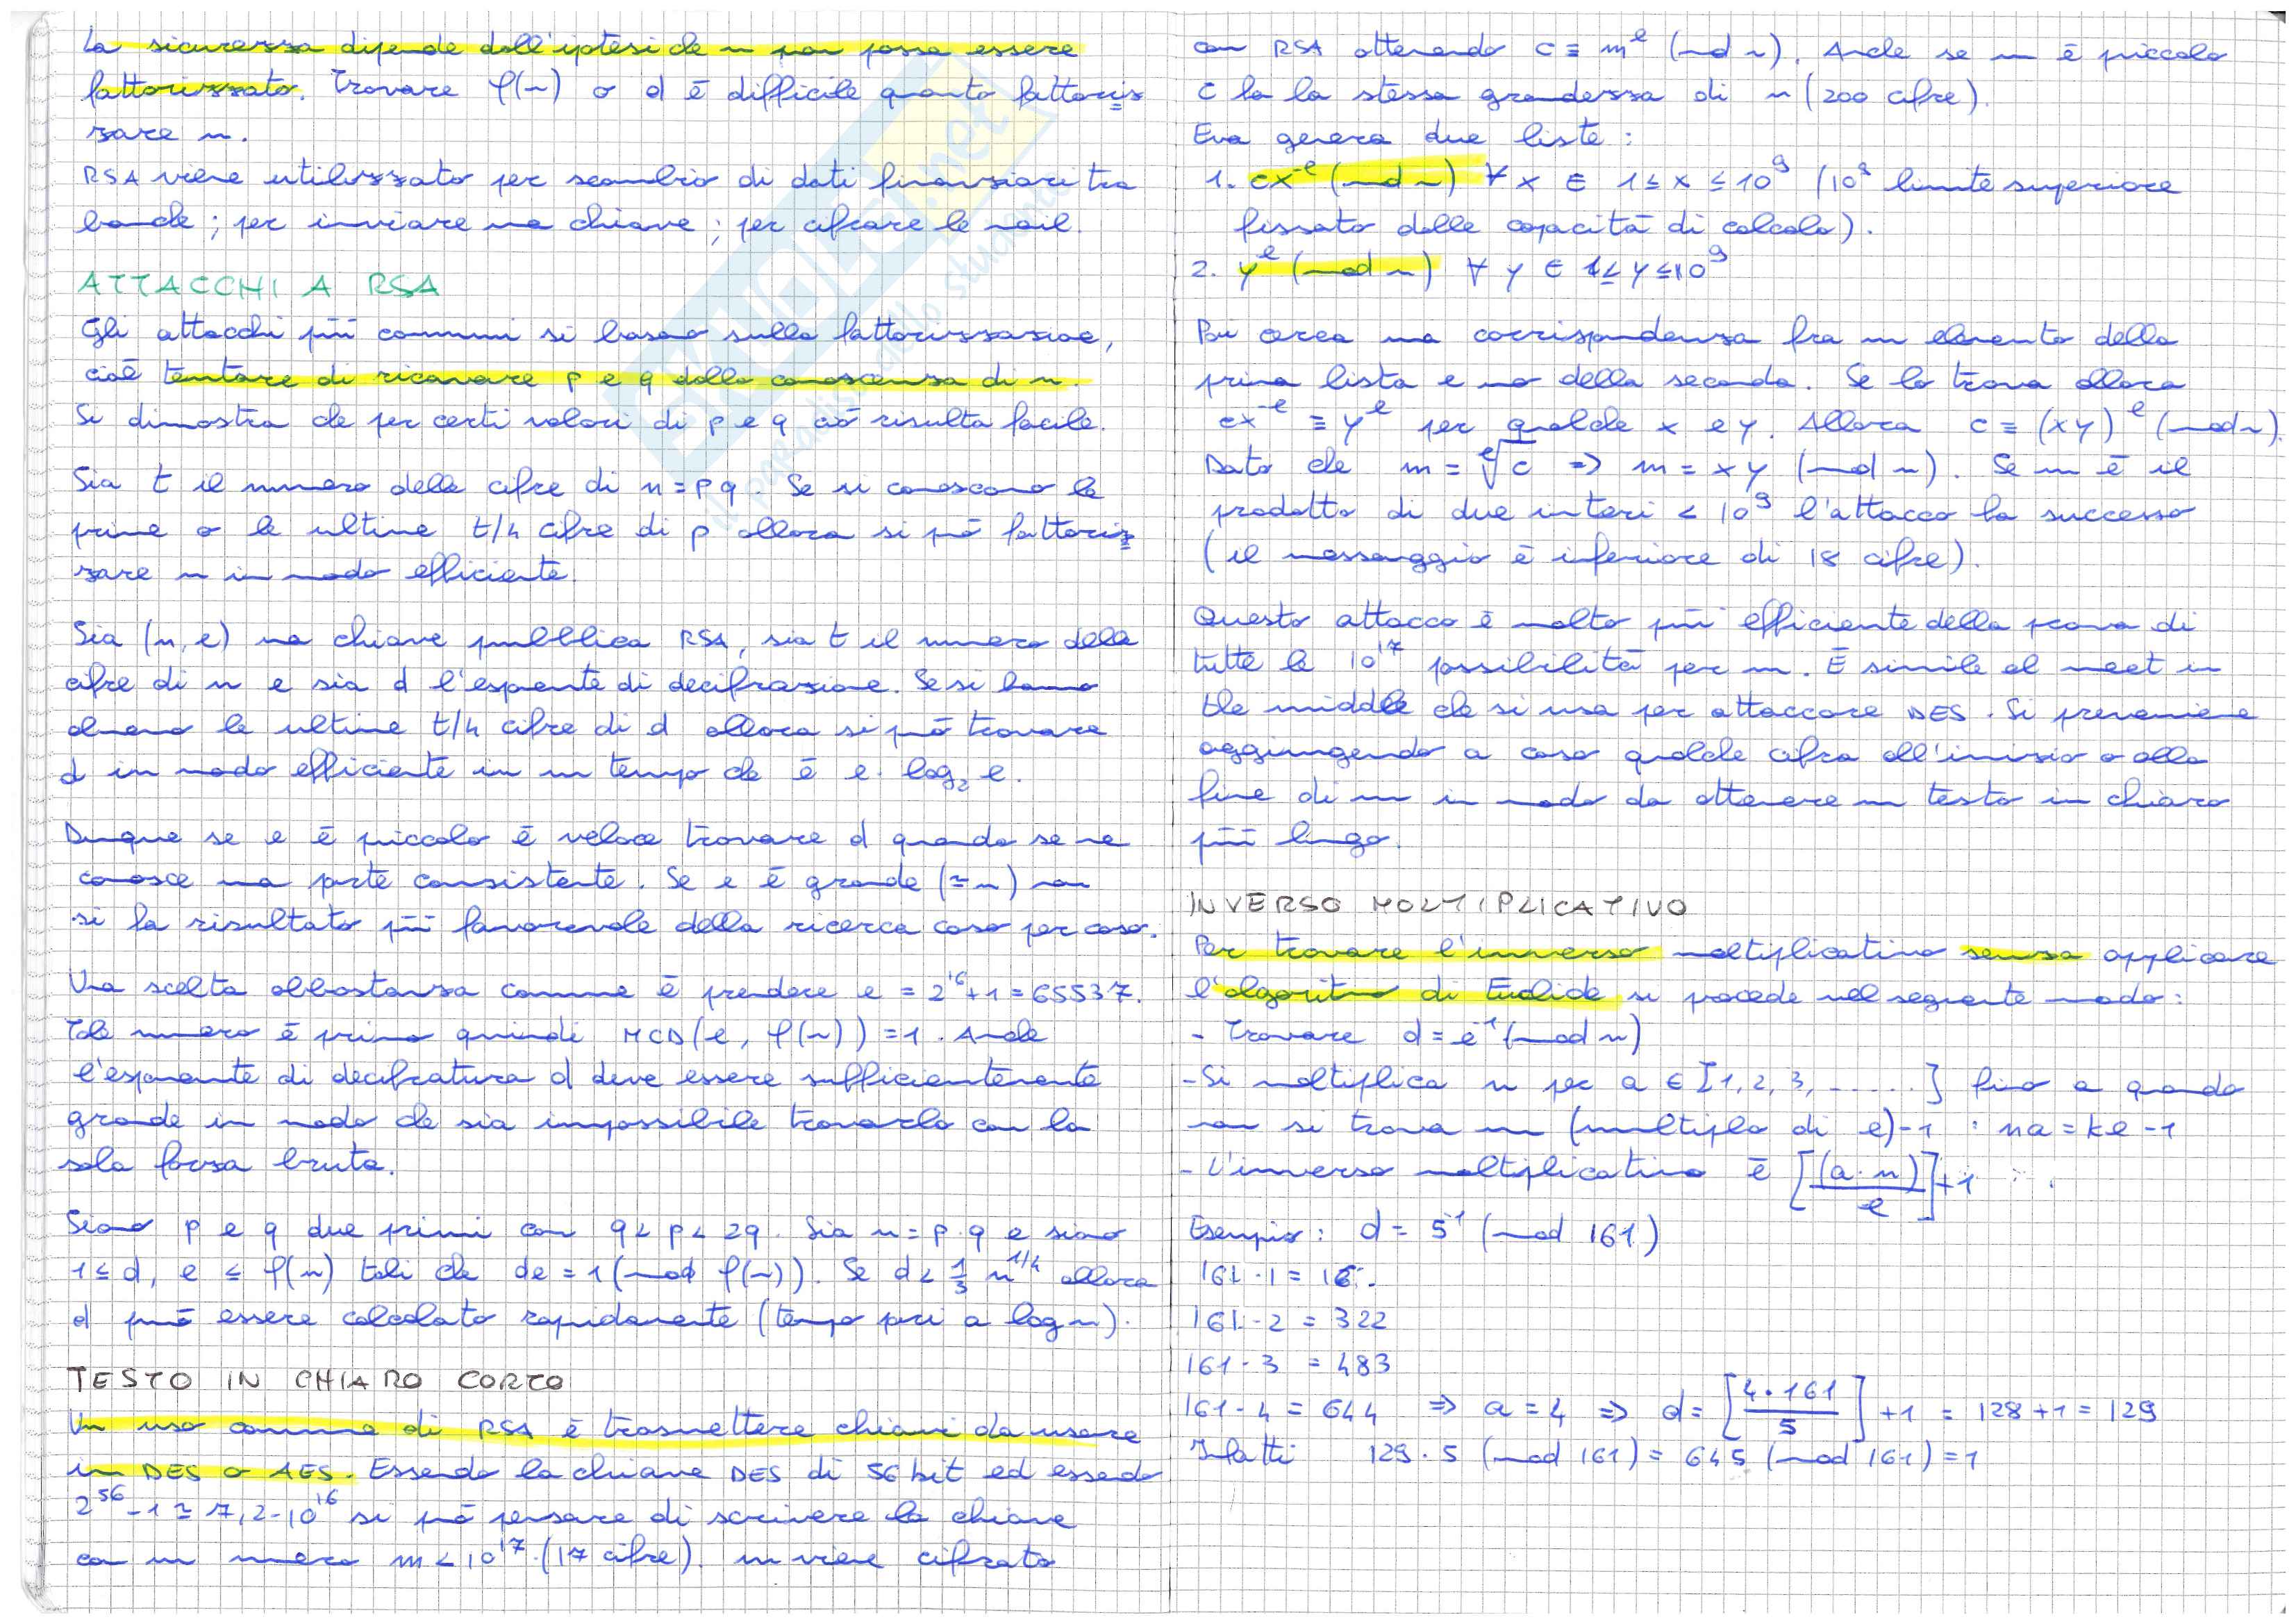 La sicurezza dipende dall'ipotesi che n non possa essere
fattorizzato. Trovare φ(n) o d è difficile quanto fattoriz
zare n.
RSA viene utilizzato per scambio di dati finanziari tra
banche; per inviare una chiave; per cifrare le mail.
ATTACCHI A RSA
Gli attacchi più comuni si basano sulla fattorizzazione,
cioè tentare di ricavare p e q dalla conoscenza di n.
Si dimostra che per certi valori di p e q ciò risulta facile.
Sia t il numero delle cifre di n=pq. Se si conoscono le
prime o le ultime t/4 cifre di p allora si può fattoriz
zare n in modo efficiente.
Sia (n, e) una chiave pubblica RSA, sia t il numero delle
cifre di n e sia d l'esponente di decifrazione. Se si hanno
almeno le ultime t/4 cifre di d allora si può trovare
d in modo efficiente in un tempo che è e·log₂ e.
Dunque se e è piccolo è veloce trovare d quando se ne
conosce una parte consistente. Se e è grande (≃n) non
si ha risultato più favorevole della ricerca caso per caso.
Una scelta abbastanza comune è prendere e = 2¹⁶+1 = 65537.
Tale numero è primo quindi MCD(e, φ(n)) = 1. Anche
l'esponente di decifratura d deve essere sufficientemente
grande in modo che sia impossibile trovarlo con la
sola forza bruta.
Siano p e q due primi con q < p < 2q. Sia n = p·q e siano
1 ≤ d, e ≤ φ(n) tali che de = 1 (mod φ(n)). Se d < 1/3 n^1/4 allora
d può essere calcolato rapidamente (tempo pari a log n).
TESTO IN CHIARO CORTO
Un uso comune di RSA è trasmettere chiavi da usare
in DES o AES. Essendo la chiave DES di 56 bit ed essendo
2⁵⁶-1 ≃ 7,2·10¹⁶ si può pensare di scrivere la chiave
con un numero m < 10¹⁷ (17 cifre). m viene cifrato
con RSA ottenendo c ≡ mᵉ (mod n). Anche se m è piccolo
c ha la stessa grandezza di n (200 cifre).
Eva genera due liste:
1. cx⁻ᵉ (mod n) ∀ x ∈ 1 ≤ x ≤ 10⁹ (10⁹ limite superiore
fissato dalle capacità di calcolo).
2. yᵉ (mod n) ∀ y ∈ 1 ≤ y ≤ 10⁹
Poi cerca una corrispondenza fra un elemento della
prima lista e uno della seconda. Se lo trova allora
cx⁻ᵉ ≡ yᵉ per qualche x e y. Allora c ≡ (xy)ᵉ (mod n).
Dato che m = ᵉ√c => m = xy (mod n). Se m è il
prodotto di due interi < 10⁹ l'attacco ha successo
(il messaggio è inferiore di 18 cifre).
Questo attacco è molto più efficiente della prova di
tutte le 10¹⁷ possibilità per m. È simile al meet in
the middle che si usa per attaccare DES. Si previene
aggiungendo a caso qualche cifra all'inizio o alla
fine di m in modo da ottenere un testo in chiaro
più lungo.
INVERSO MOLTIPLICATIVO
Per trovare l'inverso moltiplicativo senza applicare
l'algoritmo di Euclide si procede nel seguente modo:
- Trovare d = e⁻¹ (mod n)
- Si moltiplica n per a ∈ [1, 2, 3, ......] fino a quando
non si trova un (multiplo di e)-1 : na = ke -1
- L'inverso moltiplicativo è [(a·n)/e]+1
Esempio: d = 5⁻¹ (mod 161)
161·1 = 16
161·2 = 322
161·3 = 483
161·4 = 644 => a = 4 => d = [4·161/5] +1 = 128+1 = 129
Infatti 129·5 (mod 161) = 645 (mod 161) = 1